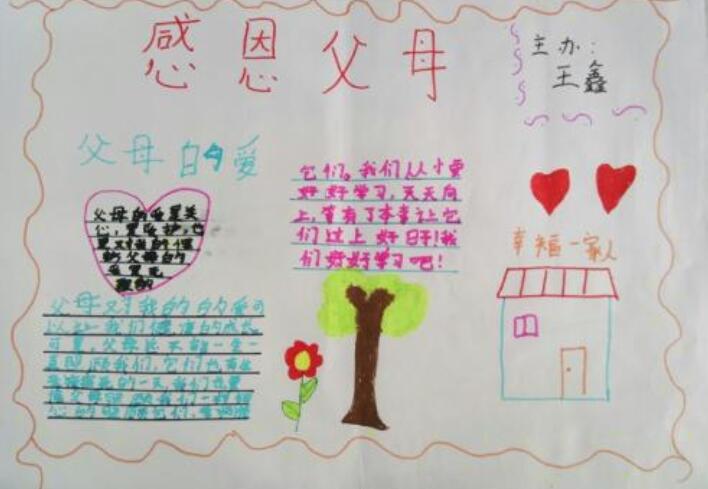 感恩父母
主办：
王鑫
父母的爱
父母的爱是关
心，是爱护，也
是对我的健
父母的
父母对我的的爱可
以让我们健康的成长
可是，父母是不能一生一
我们，它们也有
的一天，我们也要
我们一样
它们。我们从小要
好好学习，天天向
上，等有了本事让它
们过上好日子！我
们好好学习吧！
幸福一家人